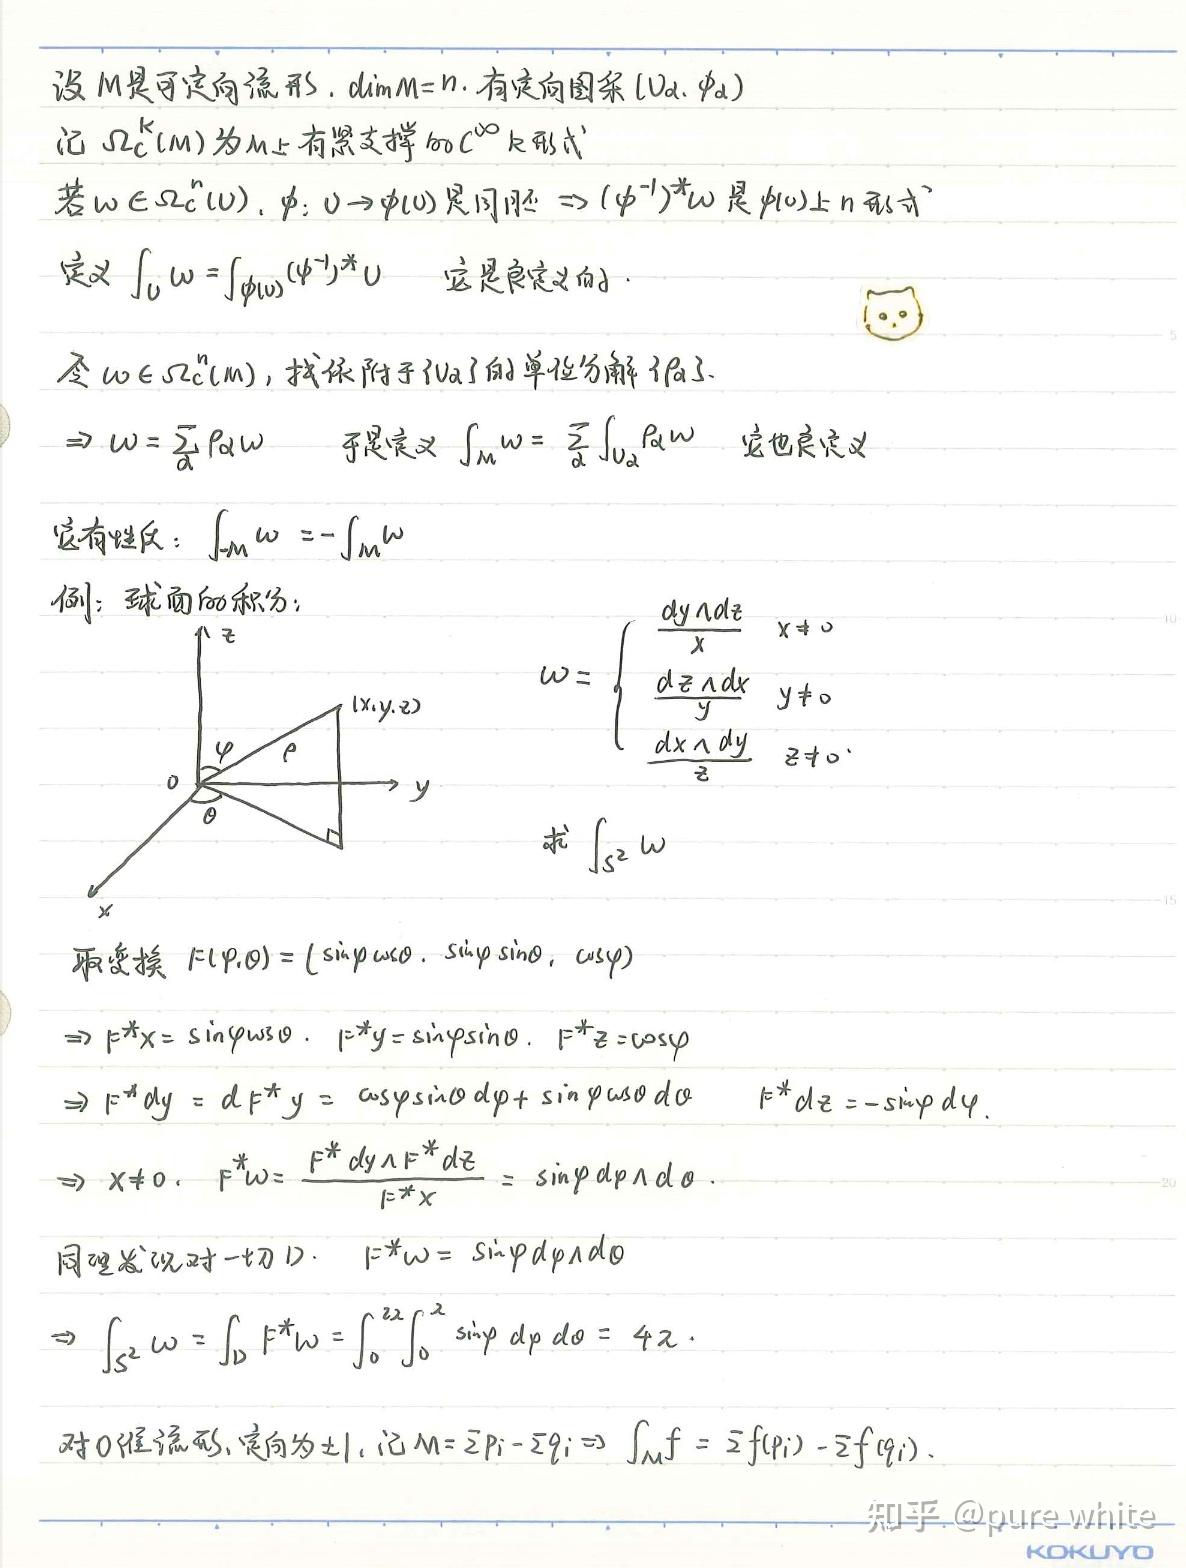 设M是可定向流形. dimM=n. 有定向图系(Uα, φα)
记 Ω_c^k(M)为M上有紧支撑的C^∞ k形式
若ω∈Ω_c^n(U), φ: U→φ(U)是同胚 ⇒ (φ^-1)^*ω 是φ(U)上n形式
定义 ∫_U ω = ∫_φ(U) (φ^-1)^* U 它是良定义的.
令 ω∈Ω_c^n(M), 找依附于{Uα}的单位分解{ρα}.
⇒ ω = Σ_α ραω 于是定义 ∫_M ω = Σ_α ∫_Uα ραω 它也良定义
它有性质: ∫_-M ω = -∫_M ω
例: 球面的积分:
z
(x,y,z)
φ
ρ
O
θ
y
x
ω = { dy∧dz/x x≠0
dz∧dx/y y≠0
dx∧dy/z z≠0.
求 ∫_S² ω
取变换 F(φ,θ) = (sinφcosθ, sinφsinθ, cosφ)
⇒ F*x = sinφcosθ. F*y = sinφsinθ. F*z = cosφ
⇒ F*dy = dF*y = cosφsinθdφ + sinφcosθdθ F*dz = -sinφdφ.
⇒ x≠0. F*ω = (F*dy∧F*dz)/(F*x) = sinφdφ∧dθ.
同理发现对一切D. F*ω = sinφdφ∧dθ
⇒ ∫_S² ω = ∫_D F*ω = ∫_0^2π ∫_0^π sinφ dφ dθ = 4π.
对0维流形, 定向为±1, 记 M=Σpi-Σqi ⇒ ∫_M f = Σf(pi) - Σf(qi).
知乎 @pure white
KOKUYO
5
10
15
20